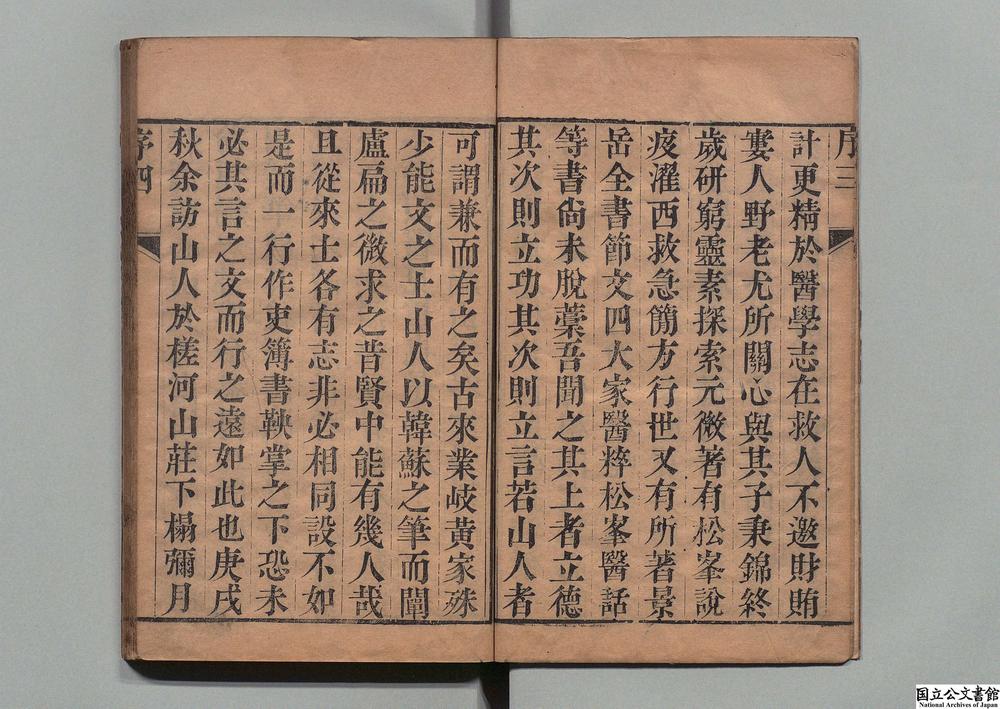 序三
計更精於醫學志在救人不邀財賄
寠人野老尤所關心與其子秉錦終
歲研窮靈素探索元微著有松峯說
疫濯西救急簡方行世又有所著景
岳全書節文四大家醫粹松峯醫話
等書尙未脫藁吾聞之其上者立德
其次則立功其次則立言若山人者
可謂兼而有之矣古來業岐黃家殊
少能文之士山人以韓蘇之筆而闡
盧扁之微求之昔賢中能有幾人哉
且從來士各有志非必相同設不如
是而一行作吏簿書鞅掌之下恐未
必其言之文而行之遠如此也庚戌
秋余訪山人於槎河山莊下榻彌月
序四
国立公文書館
National Archives of Japan